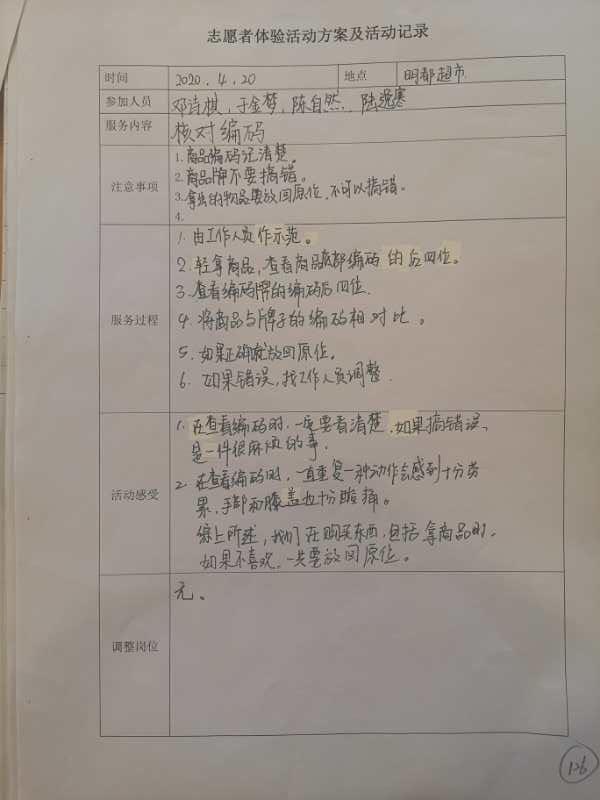 志愿者体验活动方案及活动记录
时间 2020.4.20 地点 明都超市
参加人员 邓诗棋，于金梦，陈自然，陆逸寒
服务内容 核对编码
注意事项
1. 商品编码记清楚。
2. 商品牌不要搞错。
3. 拿出的物品要放回原位，不可以搞错。
4.
服务过程
1. 由工作人员作示范。
2. 轻拿商品，查看商品底部编码的后四位。
3. 查看编码牌的编码后四位.
4. 将商品与牌子的编码相对比。
5. 如果正确就放回原位。
6. 如果错误，找工作人员调整.
活动感受
1. 在查看编码时，一定要看清楚，如果搞错误，
是一件很麻烦的事.
2. 在查看编码时，一直重复一种动作会感到十分劳
累，手部和膝盖也十分酸痛。
综上所述，我们在购买东西，包括拿商品时，
如果不喜欢，一定要放回原位。
调整岗位 无。
126